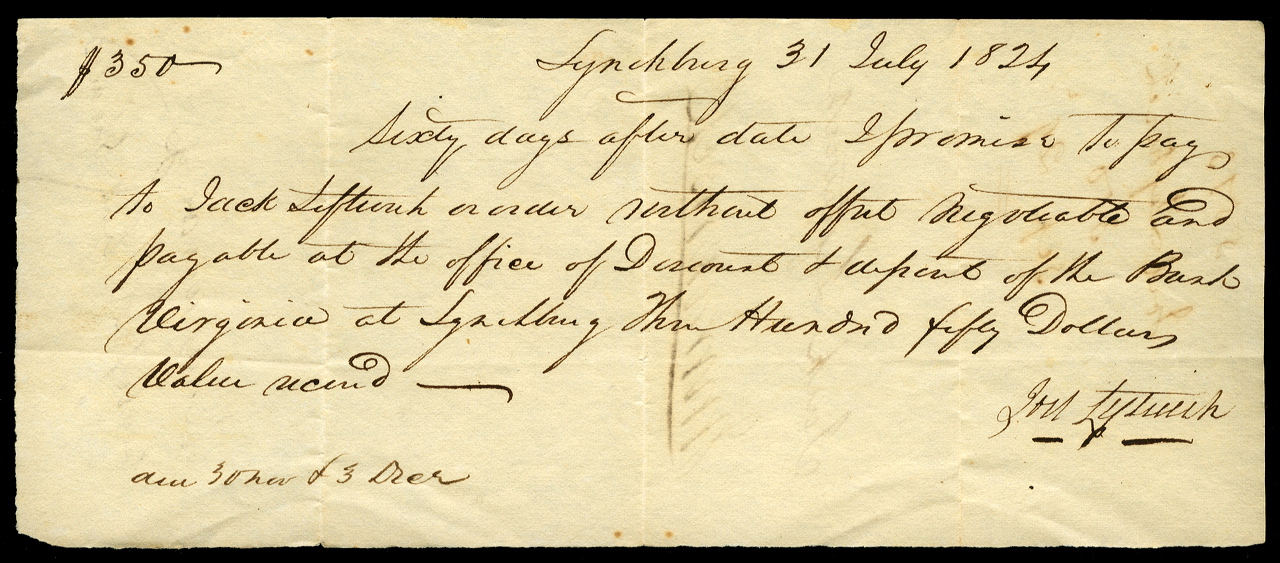 $350
Lynchburg 31 July 1824
Sixty days after date I promise to pay
to Jack Leftwich or order without offset negotiable and
payable at the office of Discount & deposit of the Bank
Virginia at Lynchburg Three Hundred fifty Dollars
Value receivd
Leftwich
due 30 Nov & 3 Decr